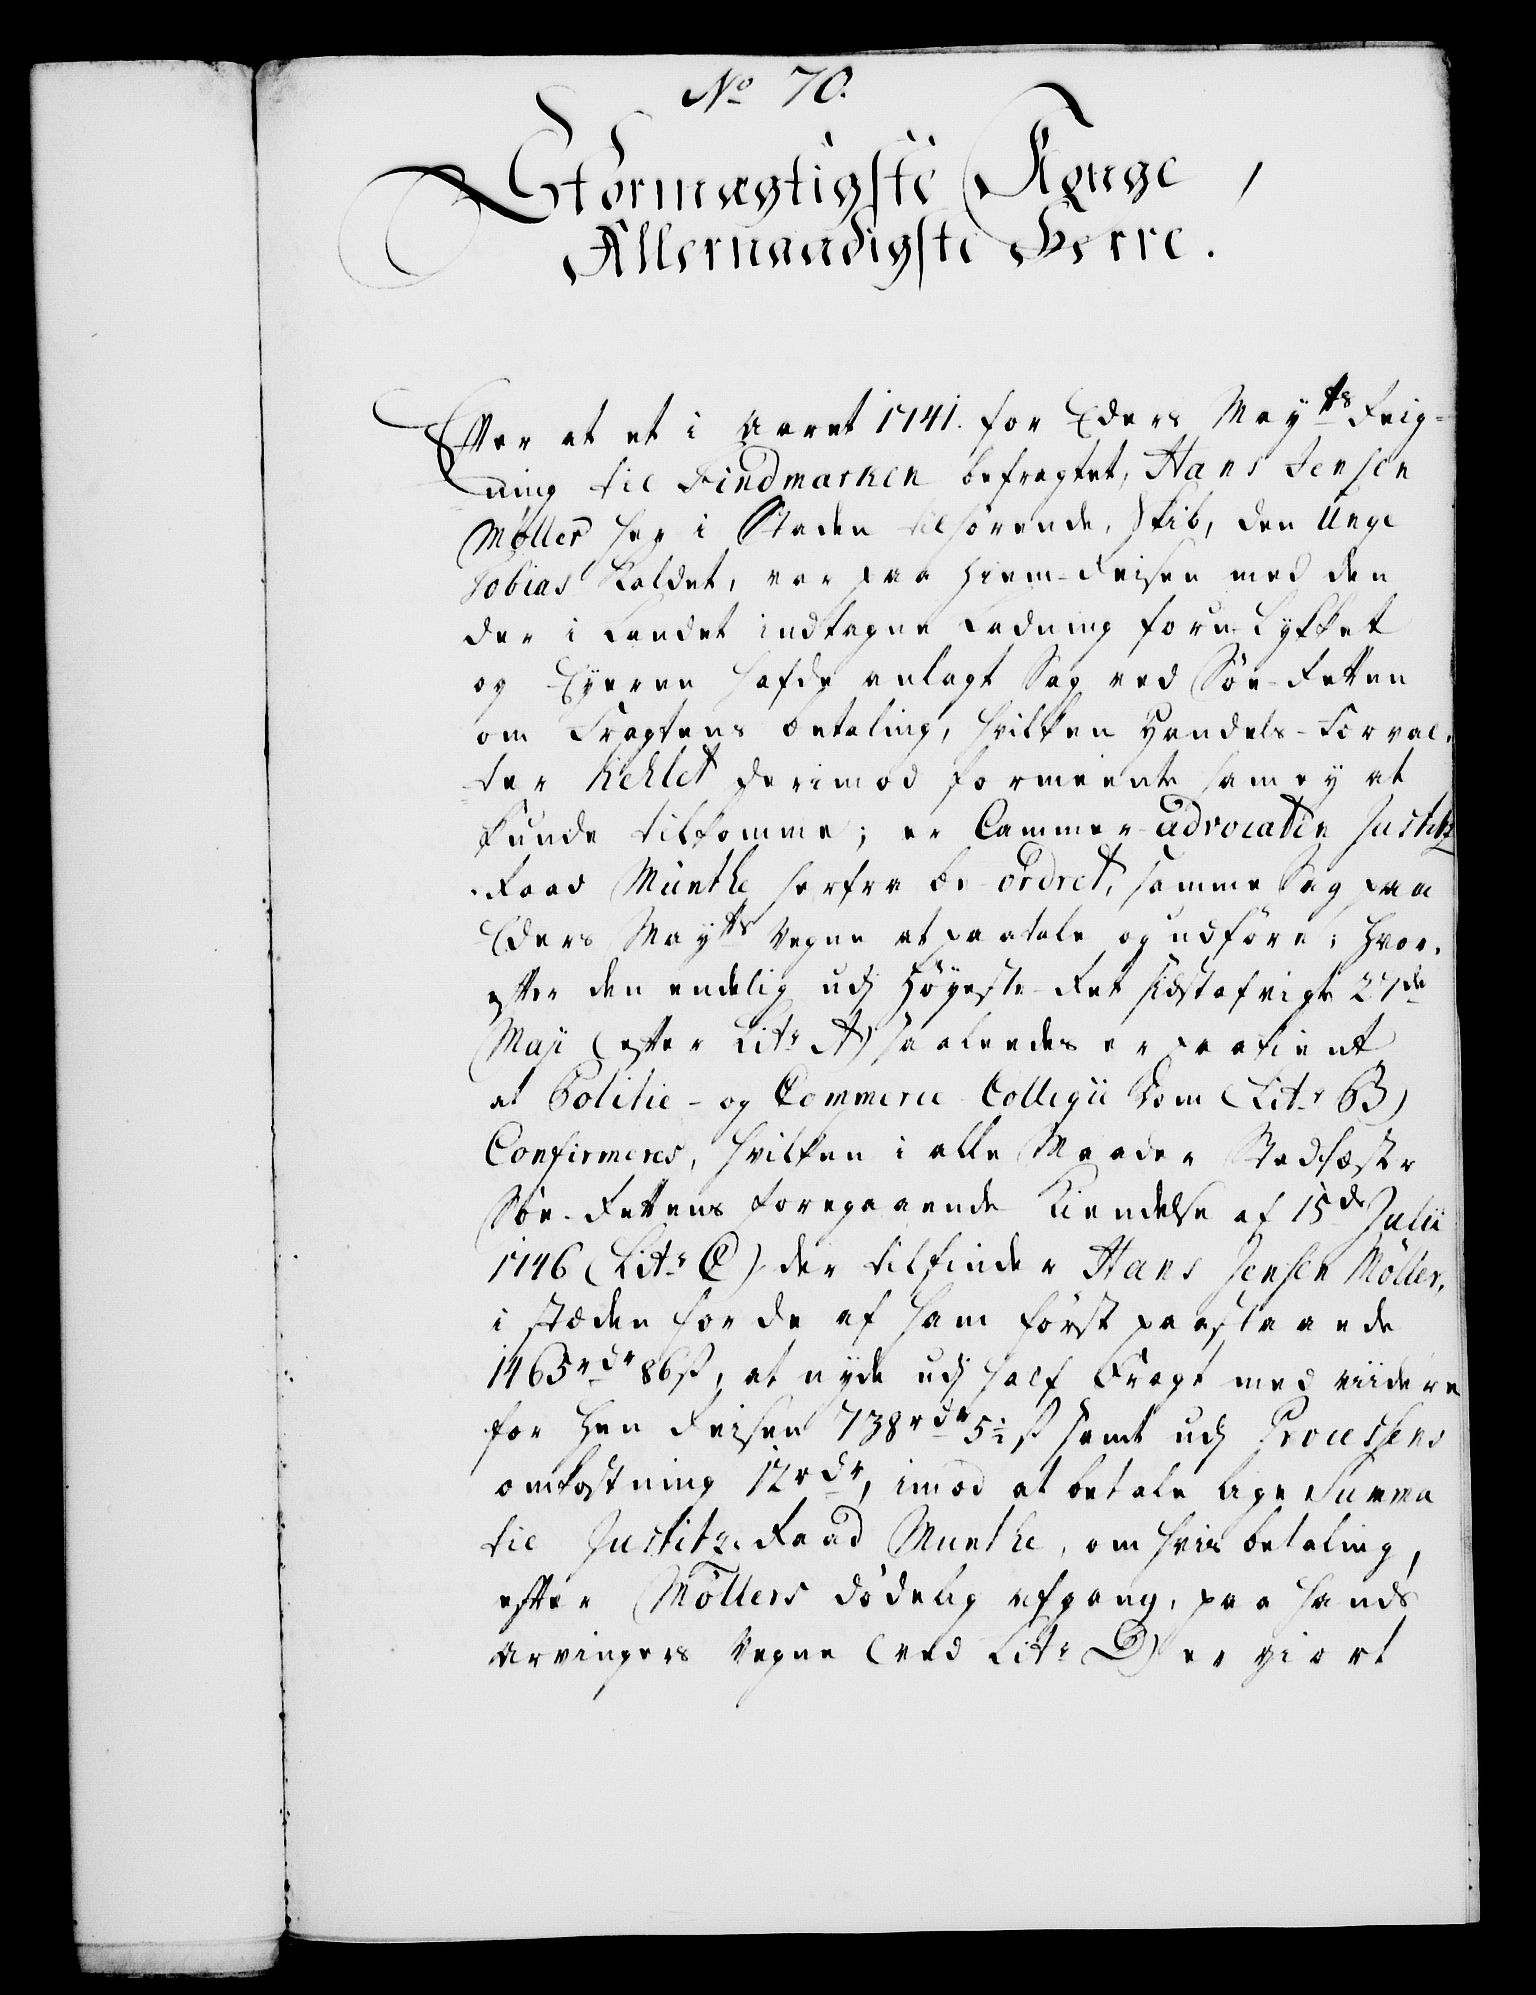 No 70.
Stormægtigste Konge,
Allernaadigste Herre.
Efter at et i Aaret 1741. for Eders Mayts Reig-
ning til Findmarken befragtet, Hans Jensen
Møller her i Staden tilhørende, Skib, den Unge
Tobias kaldet, var paa Hiem-Reisen med den
der i Landet indtagne Ladning forulykket
og Eyeren hafde anlagt Sag ved Söe-Retten
om Fragtens betaling, hvilken Handels-Forval-
ter Kellet derimod formeente ham ey at
kunde tilkomme; er Cammer-Advocaten Justitz
-Raad Munthe herfra be-ordret, samme Sag paa
Eders Mayts Vegne at paatale og udföre; hvor-
efter den endelig udj Höyeste-Ret sidstafvigte 27de
Maji (efter Litr A) saaleedes er paakient
at Politie- og Commerce Collegii Dom (Litr B)
Confirmeres, hvilken i alle Maader Stadfæster
Söe-Rettens foregaaende Kiendelse af 15de Julii
1746 (Litr C) der tilfinder Hans Jensen Möller,
i stæden for de af ham först paastaaende
1465rdr 86ß, at nyde udj half Fragt med viidere
for Hen Reisen 738rdr 5½ß samt udj Processens
omkostning 12rdr, imod at betale lige Summa
til Justitz-Raad Munthe, om hvis betaling,
efter Möllers dödelig afgang, paa hands
Arvingers Vegne (ved Litr D) er giort